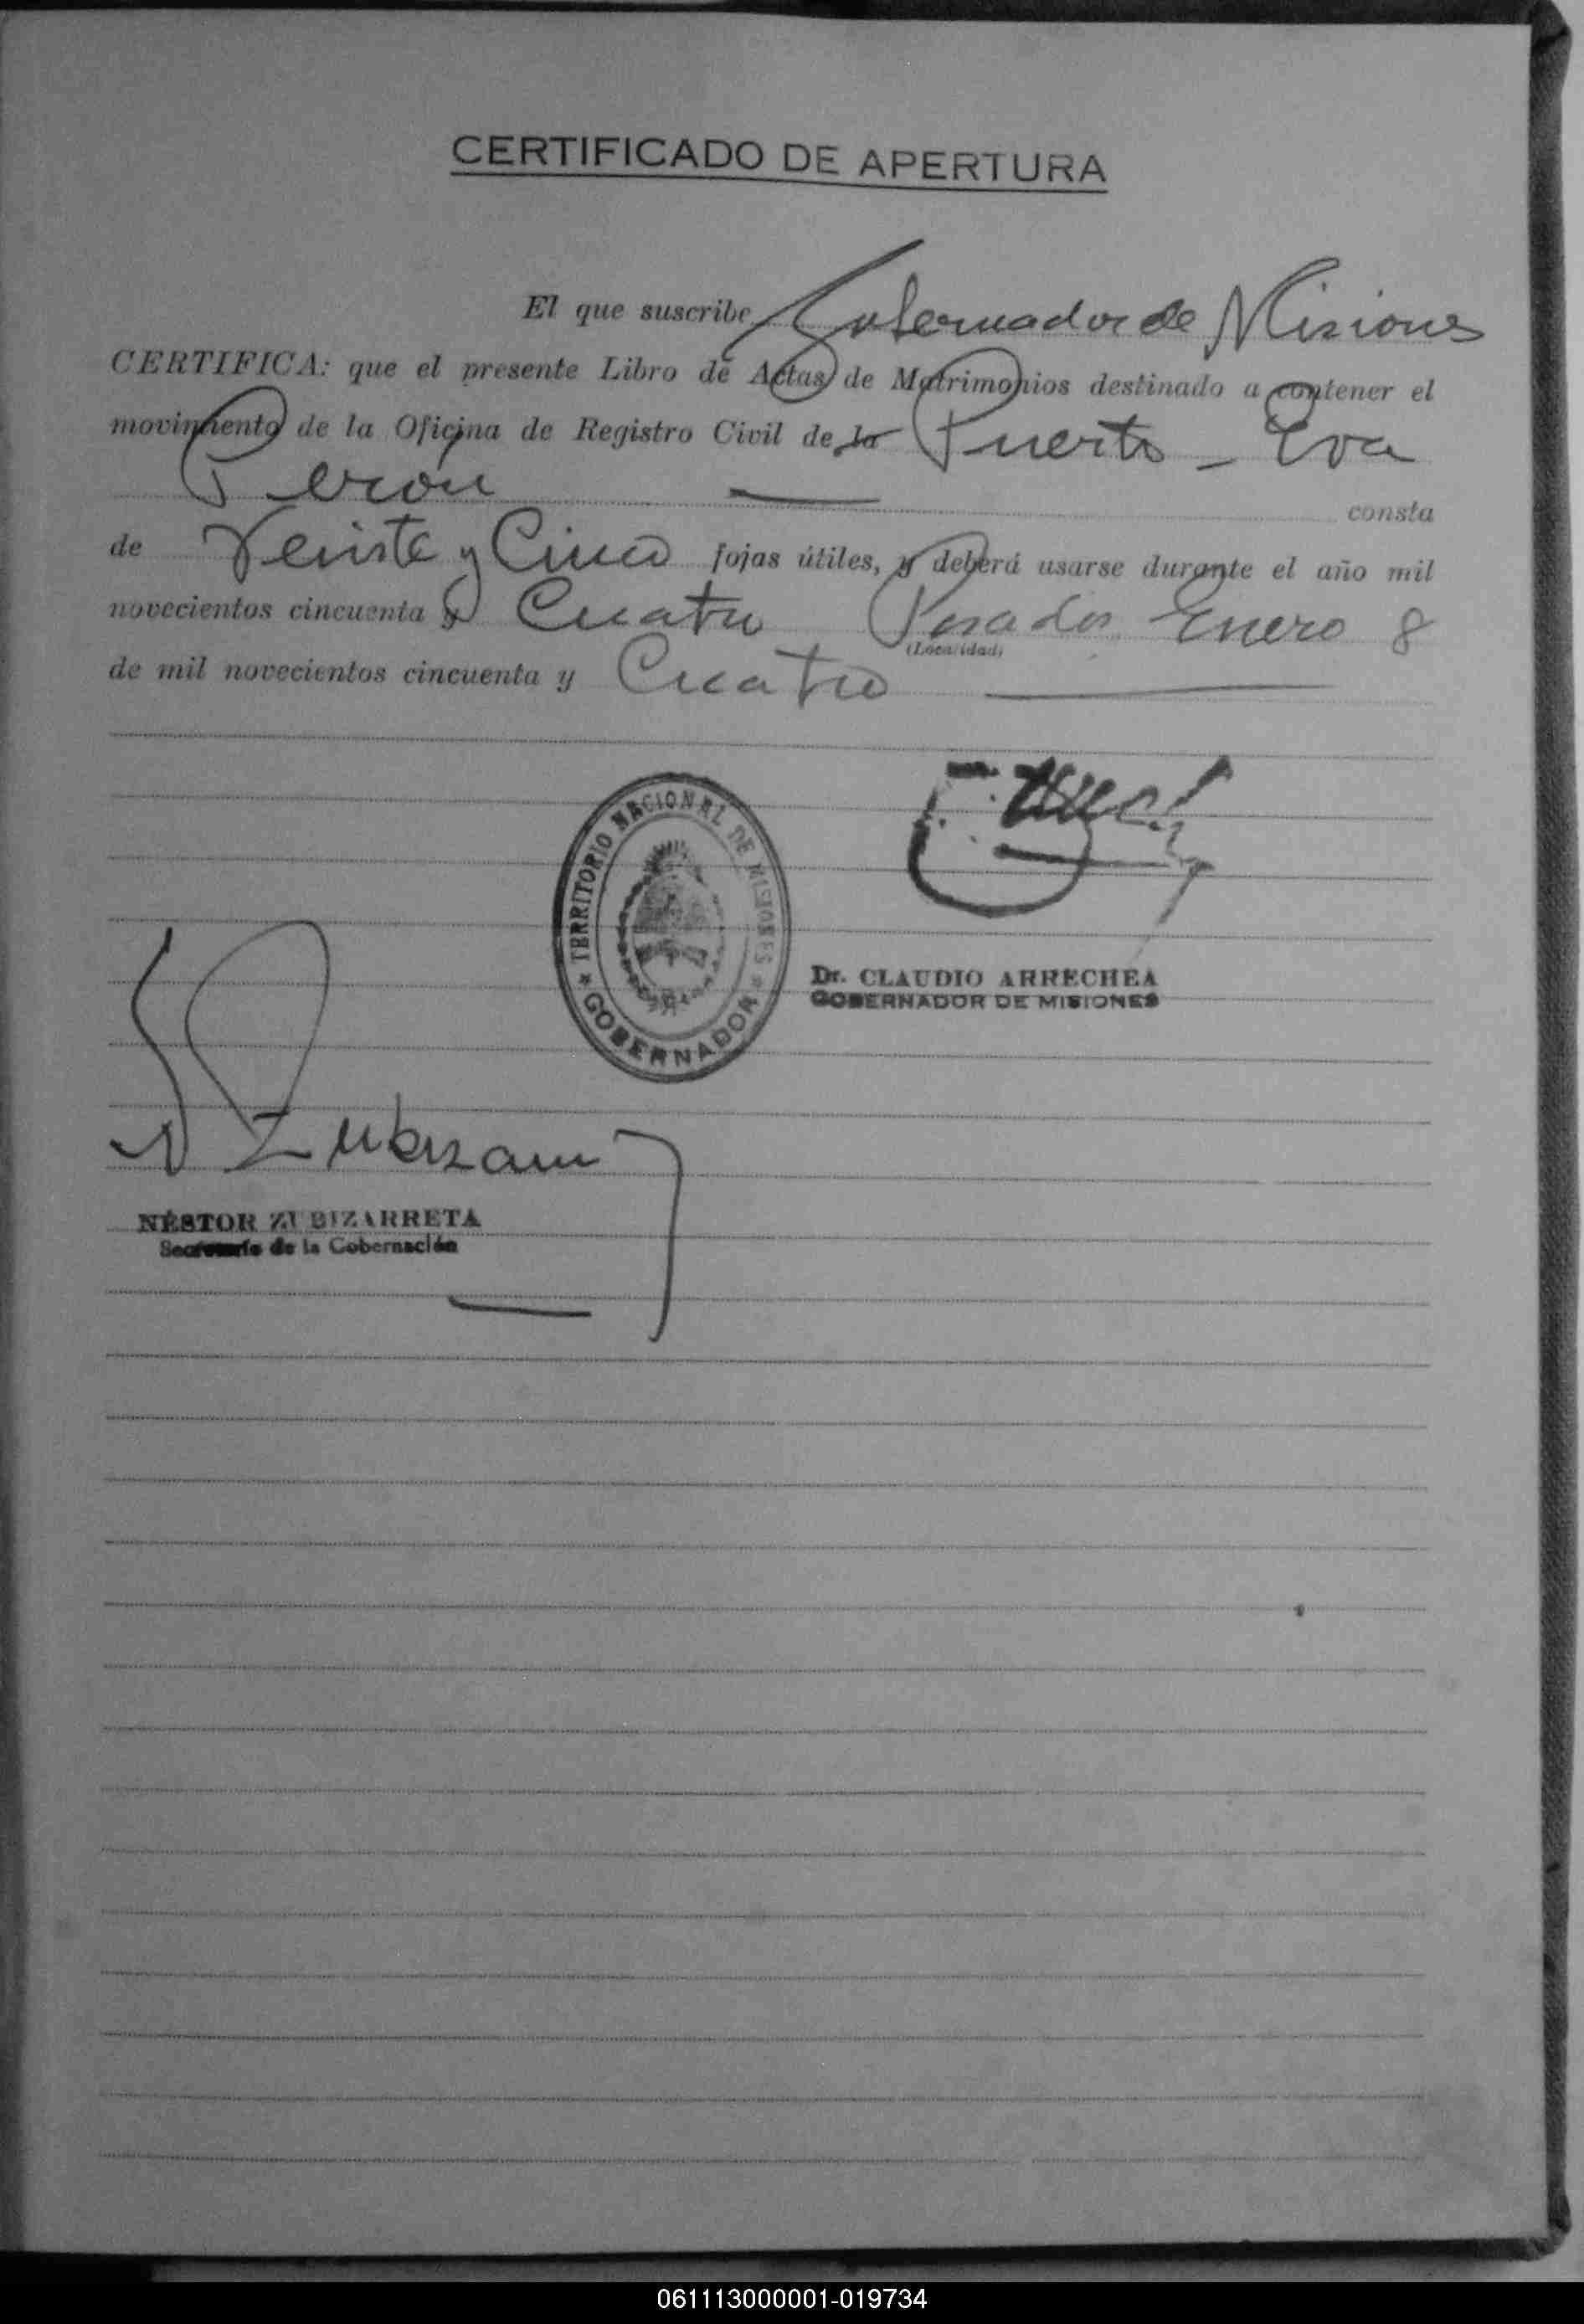 CERTIFICADO DE APERTURA
El que suscribe Gobernador de Misiones
CERTIFICA: que el presente Libro de Actas de Matrimonios destinado a contener el
movimiento de la Oficina de Registro Civil de la Puerto - Eva
Perón consta
de Veinte y Cinco fojas útiles, y deberá usarse durante el año mil
novecientos cincuenta y Cuatro Posadas Enero 8
(Localidad)
de mil novecientos cincuenta y Cuatro
TERRITORIO NACIONAL DE MISIONES
* GOBERNADOR *
Dr. CLAUDIO ARRECHEA
GOBERNADOR DE MISIONES
N Zubizarr
NÉSTOR ZUBIZARRETA
Secretario de la Gobernación
061113000001-019734